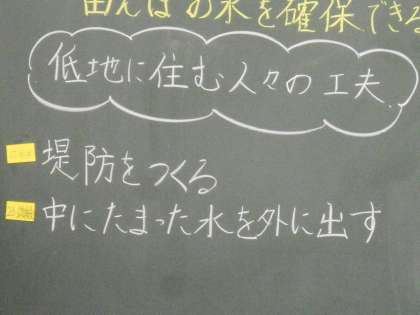 お水を確保できる
低地に住む人々の工夫
堤防をつくる
中にたまった水を外に出す